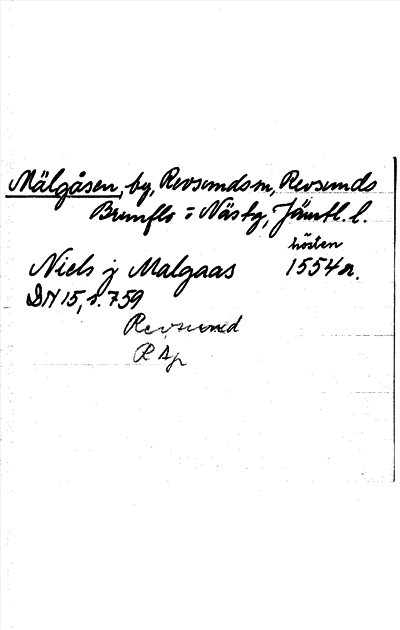 Mälgåsen, by, Revsundsm, Revsunds
Brunflo = Näs ty, Jämtl. l.
hösten
Niels j Malgaas 1554 n.
DN 15, s. 759
Revsund
R Ap